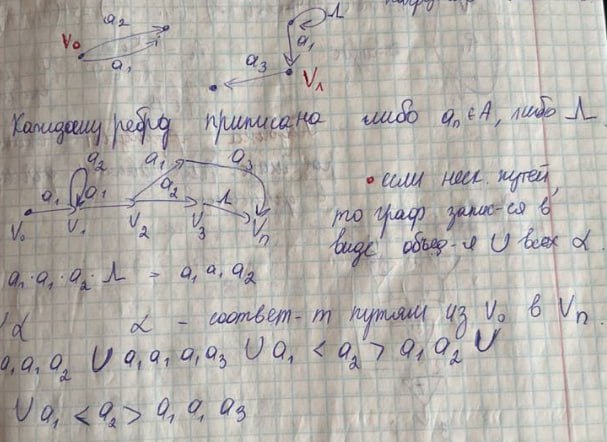 a₂
V₀
a₁
Λ
a₁
a₃
V₁
Каждому ребру приписана либо aₙ ∈ A, либо Λ
a₂
a₁
a₃
a₁
a₁
a₂
Λ
V₀
V₁
V₂
V₃
Vₙ
• если неск. путей,
то граф запис-ся в
виде объед-я ∪ всех α
a₁·a₁·a₂·Λ = a₁a₁a₂
α
α – соответ-т путям из V₀ в Vₙ.
a₁a₁a₂ ∪ a₁a₁a₁a₃ ∪ a₁<a₂>a₁a₂ ∪
∪ a₁<a₂>a₁a₁a₃